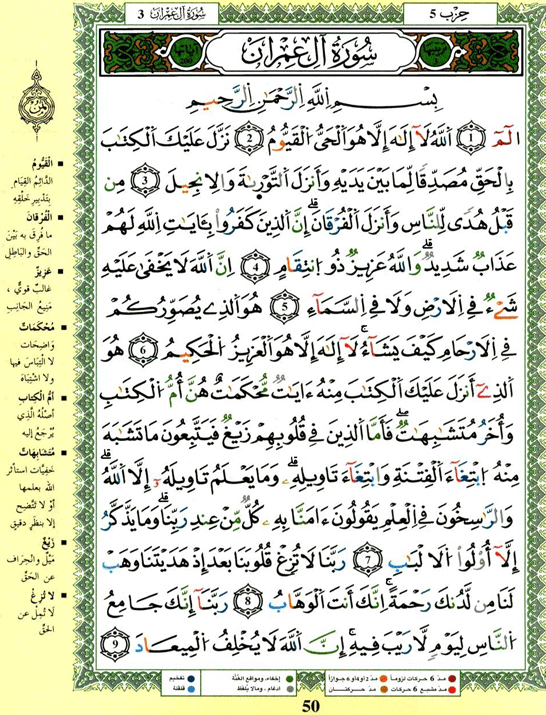 حِزْب 5
سُورَةُ آلِ عِمْرَان 3
سُورَةُ آلِ عِمْرَانَ
بِسْمِ اللَّهِ الرَّحْمَٰنِ الرَّحِيمِ
أَلَٓمِّٓ 1 اَ۬للَّهُ لَآ إِلَٰهَ إِلَّا هُوَ اَ۬لْحَيُّ اُ۬لْقَيُّومُ 2 نَزَّلَ عَلَيْكَ اَ۬لْكِتَٰبَ
بِالْحَقِّ مُصَدِّقاً لِّمَا بَيْنَ يَدَيْهِ وَأَنزَلَ اَ۬لتَّوْر۪يٰةَ وَالِانجِيلَ 3 مِن
قَبْلُ هُدىً لِّلنَّاسِ وَأَنزَلَ اَ۬لْفُرْقَانَۖ إِنَّ اَ۬لذِينَ كَفَرُواْ بِـَٔايَٰتِ اِ۬للَّهِ لَهُمْ
عَذَابٞ شَدِيدٞۖ وَاللَّهُ عَزِيزٞ ذُو اُ۪نتِقَامٍ 4 اِنَّ اَ۬للَّهَ لَا يَخْفَىٰ عَلَيْهِ
شَےْءٞ فِے اِ۬لَارْضِ وَلَا فِے اِ۬لسَّمَآءِ 5 هُوَ اَ۬لذِے يُصَوِّرُكُمْ
فِے اِ۬لَارْحَامِ كَيْفَ يَشَآءُۖ لَآ إِلَٰهَ إِلَّا هُوَ اَ۬لْعَزِيزُ اُ۬لْحَكِيمُ 6 هُوَ
اَ۬لذِےٓ أَنزَلَ عَلَيْكَ اَ۬لْكِتَٰبَ مِنْهُ ءَايَٰتٞ مُّحْكَمَٰتٌ هُنَّ أُمُّ اُ۬لْكِتَٰبِ
وَأُخَرُ مُتَشَٰبِهَٰتٞۖ فَأَمَّا اَ۬لذِينَ فِے قُلُوبِهِمْ زَيْغٞ فَيَتَّبِعُونَ مَا تَشَٰبَهَ
مِنْهُ اُ۪بْتِغَآءَ اَ۬لْفِتْنَةِ وَابْتِغَآءَ تَاوِيلِهِۦۖ وَمَا يَعْلَمُ تَاوِيلَهُۥٓ إِلَّا اَ۬للَّهُۖ
وَالرَّٰسِخُونَ فِے اِ۬لْعِلْمِ يَقُولُونَ ءَامَنَّا بِهِۦ كُلّٞ مِّنْ عِندِ رَبِّنَاۖ وَمَا يَذَّكَّرُ
إِلَّآ أُوْلُواْ اُ۬لَالْبَٰبِ 7 رَبَّنَا لَا تُزِغْ قُلُوبَنَا بَعْدَ إِذْ هَدَيْتَنَا وَهَبْ
لَنَا مِن لَّدُنكَ رَحْمَةًۖ اِنَّكَ أَنتَ اَ۬لْوَهَّابُ 8 رَبَّنَآ إِنَّكَ جَامِعُ
اُ۬لنَّاسِ لِيَوْمٖ لَّا رَيْبَ فِيهِۖ إِنَّ اَ۬للَّهَ لَا يُخْلِفُ اُ۬لْمِيعَادَ 9
■ الْقَيُّومُ
الدَّائِمُ الْقِيَامِ
بِتَدْبِيرِ خَلْقِهِ
■ الْفُرْقَانَ
ما فُرِقَ به بَيْنَ
الحقِّ والبَاطِلِ
■ عَزِيزٌ
غالبٌ قويٌّ ،
مَنيعُ الجانِبِ
■ مُحْكَمَاتٌ
وَاضِحَات
لا الْتِبَاسَ فِيها
ولا اشْتِبَاهَ
■ أمُّ الكِتابِ
أَصْلُهُ الَّذِي
يُرْجَعُ إليه
■ مُتَشَابِهَاتٌ
خفِيَّات استأثر
الله بعلمها
أوْ لا تتَّضِح
إلا بنظرٍ دقيقٍ
■ زَيْغٌ
مَيْلٌ وانْحِرَاف
عن الحَقِّ
■ لا تُزِغْ
لا تُمِلْ عن
الحقِّ
مدّ 6 حركات لزوماً
مدّ 2 أو 4 أو 6 جوازاً
إخفاء، ومواقع الغُنَّة
تفخيم
مدّ مشبع 6 حركات
مدّ حركتان
إدغام، وما لا يُلفَظ
قلقلة
50